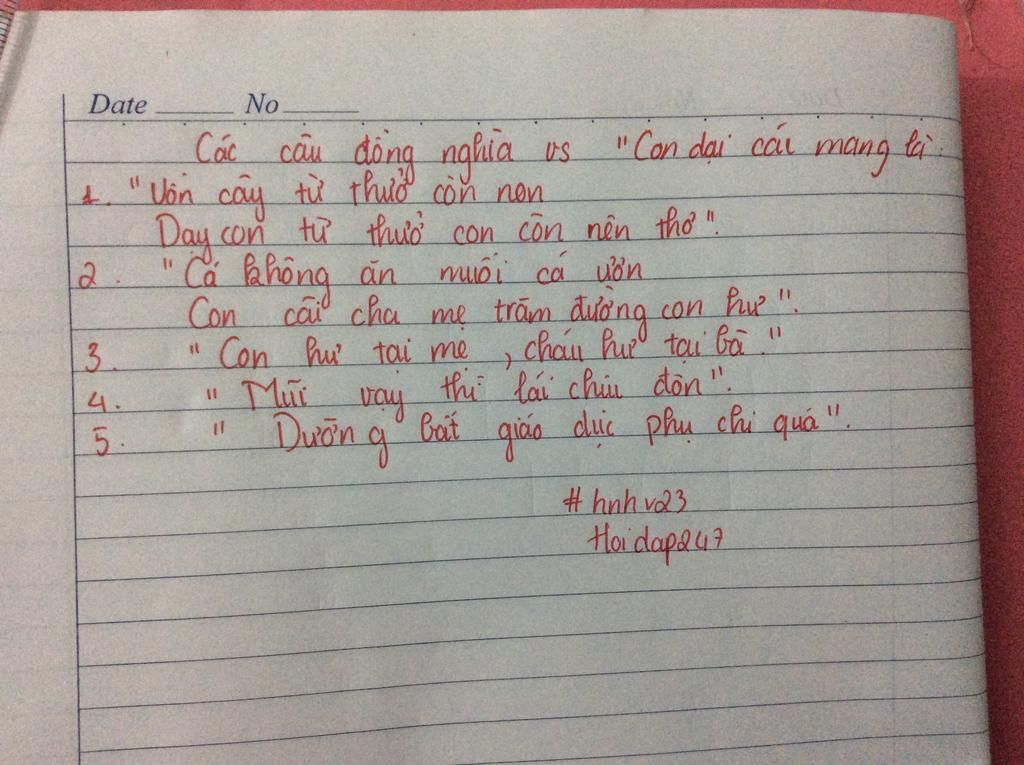 Date No
Các câu đồng nghĩa vs "Con dại cái mang là:
1. "Uốn cây từ thuở còn non
Dạy con từ thuở con còn nên thơ".
2. "Cá không ăn muối cá ươn
Con cãi cha mẹ trăm đường con hư".
3. "Con hư tại mẹ, cháu hư tại bà."
4. "Mũi vạy thì lái chịu đòn".
5. "Dưỡng bất giáo dục phụ chi quá".
#hnhv23
Hoidap247